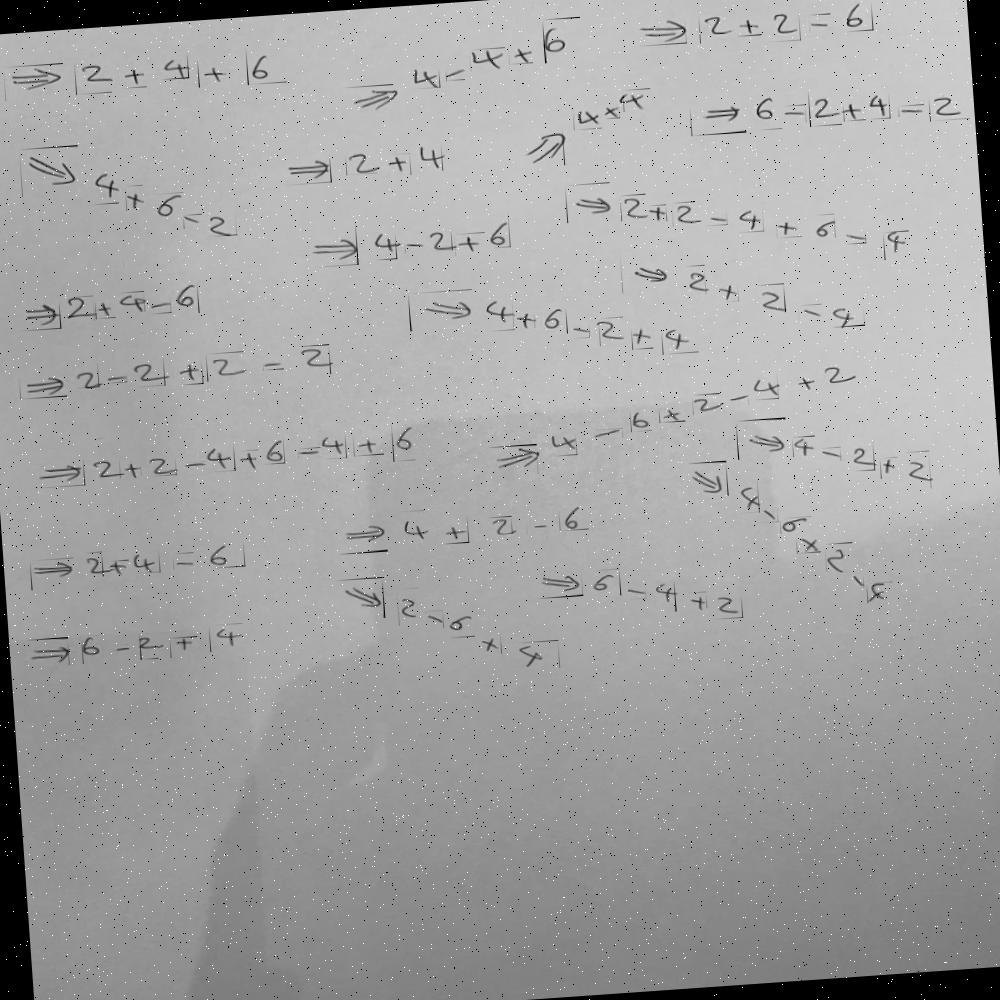 ⇒ 2 + 4 + 6
⇒ 4 - 4 + 6
⇒ 2 + 2 = 6
⇒ 4 + 4
⇒ 6 = 2 + 4 = 2
⇒ 4 + 6 - 2
⇒ 2 + 4
⇒ 2 + 2 - 4 + 6 = 4
⇒ 4 - 2 + 6
⇒ 2 + 2 - 4
⇒ 2 + 4 - 6
⇒ 4 + 6 - 2 + 4
⇒ 2 - 2 + 2 = 2
⇒ 4 - 6 + 2 - 4 + 2
⇒ 2 + 2 - 4 + 6 - 4 + 6
⇒ 4 - 2 + 2
⇒ 4 - 6 + 2 - 4
⇒ 4 + 2 - 6
⇒ 2 + 4 = 6
⇒ 6 - 4 + 2
⇒ 2 - 6 + 4
⇒ 6 - 2 + 4